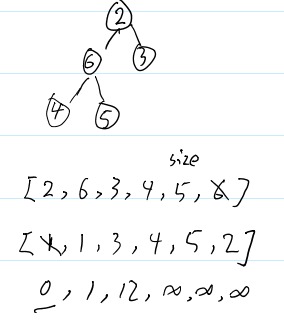 2
6 3
4 5
size
[2, 6, 3, 4, 5, X]
[X, 1, 3, 4, 5, 2]
0, 1, 12, ∞, ∞, ∞